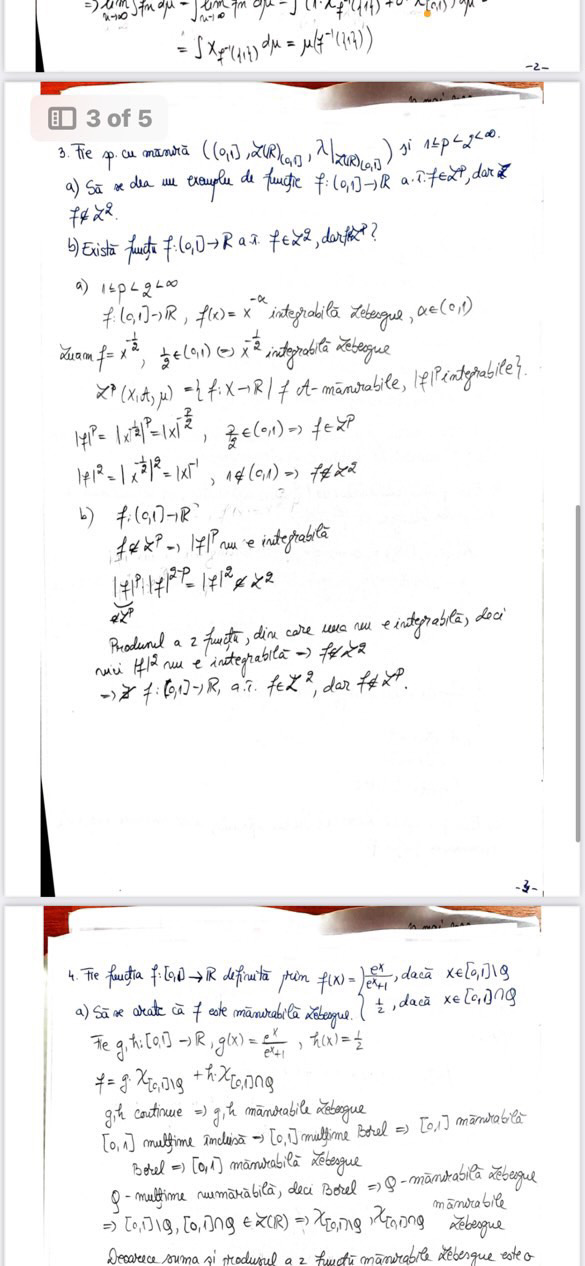 = ∫ χ_{f⁻¹({1})} dμ = μ(f⁻¹({1}))
-2-
3 of 5
3. Fie sp. cu măsură ((0,1], ℒ(ℝ)_{(0,1]}, λ|_{ℒ(ℝ)_{(0,1]}}) și 1≤p<2<∞.
a) Să se dea un exemplu de funcție f:(0,1]→ℝ a.î. f∈ℒᵖ, dar
f∉ℒ².
b) Există funcții f:(0,1]→ℝ a.î. f∈ℒ², dar f∉ℒᵖ?
a) 1≤p<2<∞
f:(0,1]→ℝ, f(x)=x^{-α} integrabilă Lebesgue, α∈(0,1)
Luăm f=x^{-1/2}, 1/2∈(0,1) ⇒ x^{-1/2} integrabilă Lebesgue
ℒᵖ(X,A,μ)={f:X→ℝ / f A-măsurabile, |f|ᵖ integrabile}.
|f|ᵖ=|x^{-1/2}|ᵖ=|x|^{-p/2}, p/2∈(0,1) ⇒ f∈ℒᵖ
|f|²=|x^{-1/2}|²=|x|⁻¹, 1∉(0,1) ⇒ f∉ℒ²
b) f:(0,1]→ℝ
f∉ℒᵖ ⇒ |f|ᵖ nu e integrabilă
|f|ᵖ·|f|^{2-p}=|f|²∉ℒ²
∉ℒᵖ
Produsul a 2 funcții, din care una nu e integrabilă, deci
nici |f|² nu e integrabilă ⇒ f∉ℒ²
⇒ ∄ f:(0,1]→ℝ, a.î. f∈ℒ², dar f∉ℒᵖ.
-3-
4. Fie funcția f:[0,1]→ℝ definită prin f(x)={ eˣ/(eˣ+1), dacă x∈[0,1]\Q
1/2, dacă x∈[0,1]∩Q
a) Să se arate că f este măsurabilă Lebesgue.
Fie g,h:[0,1]→ℝ, g(x)=eˣ/(eˣ+1), h(x)=1/2
f=g·χ_{[0,1]\Q}+h·χ_{[0,1]∩Q}
g,h continue ⇒ g,h măsurabile Lebesgue
[0,1] mulțime închisă ⇒ [0,1] mulțime Borel ⇒ [0,1] măsurabilă
Borel ⇒ [0,1] măsurabilă Lebesgue
Q-mulțime numărabilă, deci Borel ⇒ Q-măsurabilă Lebesgue
⇒ [0,1]\Q, [0,1]∩Q∈ℒ(ℝ) ⇒ χ_{[0,1]\Q}, χ_{[0,1]∩Q} măsurabile Lebesgue
Deoarece suma și produsul a 2 funcții măsurabile Lebesgue este o